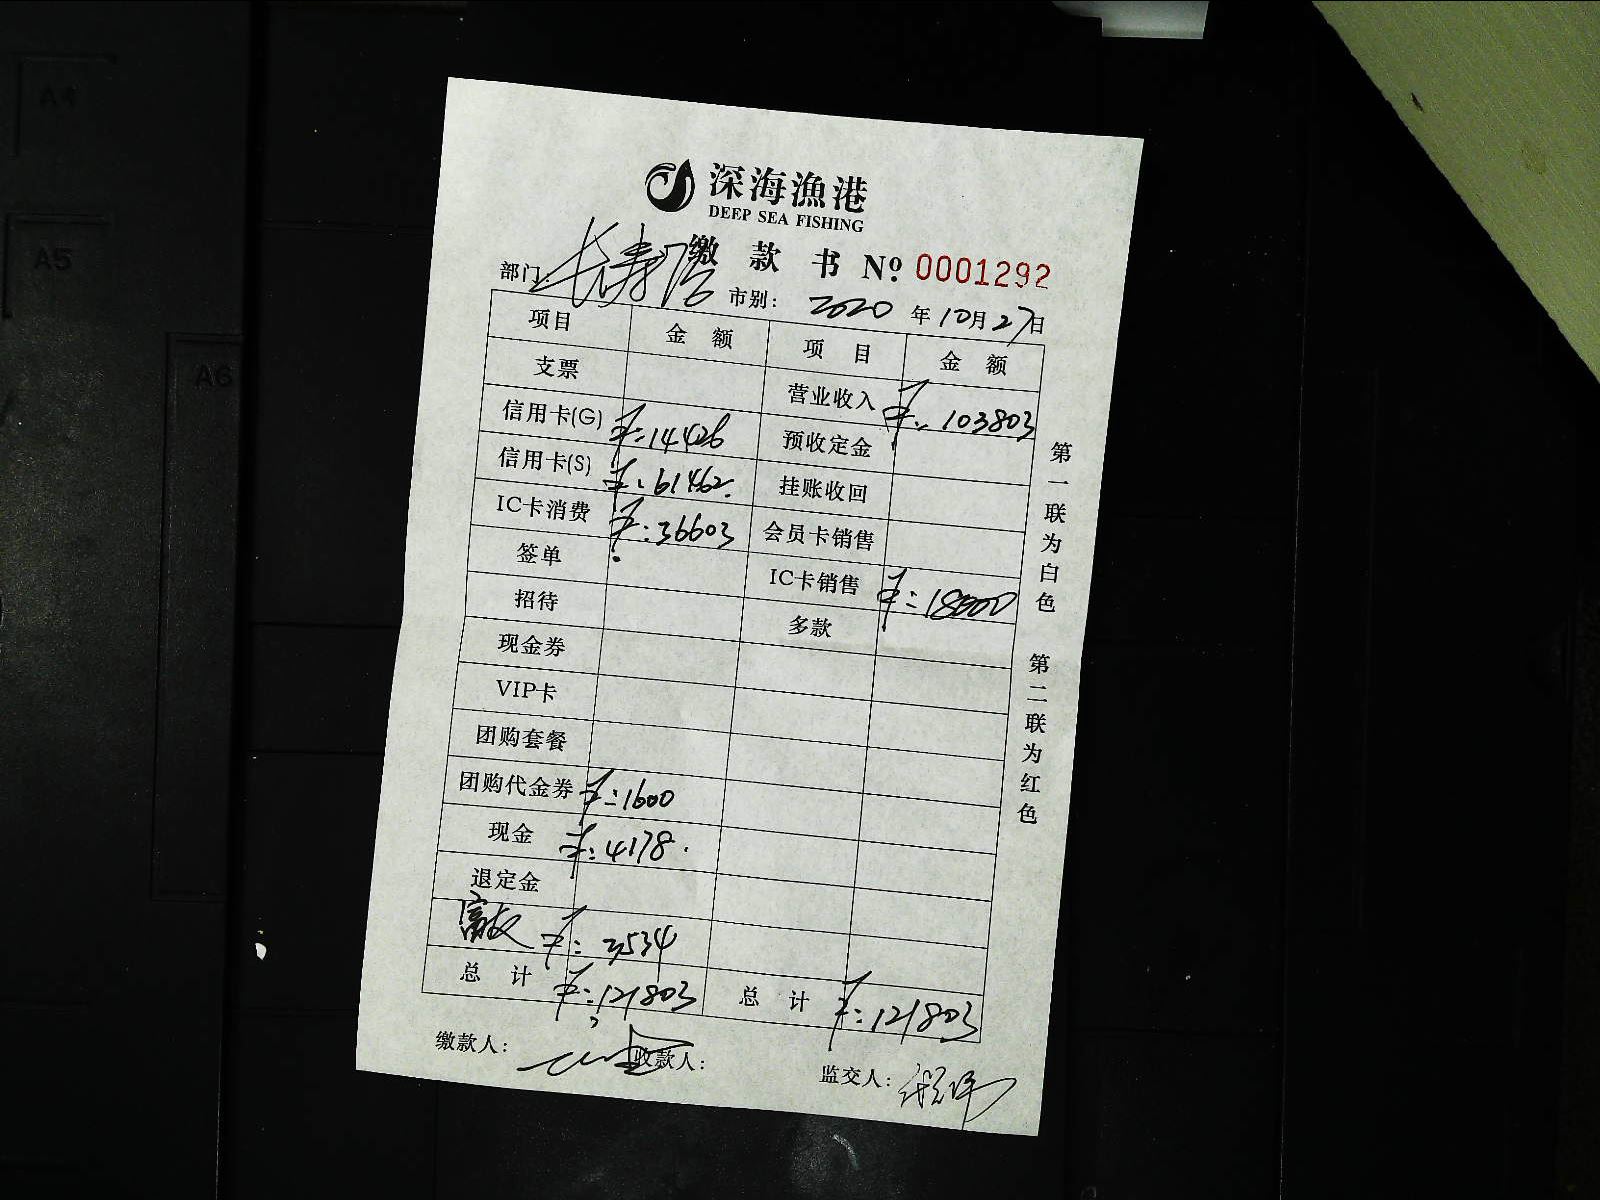 A4
A5
A6
深海漁港
DEEP SEA FISHING
缴款书 Nº 0001292
部门: 长寿店 市别: 2020年10月27日
项目 金额 项目 金额
支票 营业收入 ¥: 103803
信用卡(G) ¥:14426 预收定金
信用卡(S) ¥:61462. 挂账收回
IC卡消费 ¥:36603 会员卡销售
签单 IC卡销售 ¥:18000
招待 多款
现金券
VIP卡
团购套餐
团购代金券 ¥:1600
现金 ¥:4178.
退定金
¥: 3534
总计 ¥:121803 总计 ¥:121803
缴款人: 收款人: 监交人:
第一联为白色 第二联为红色